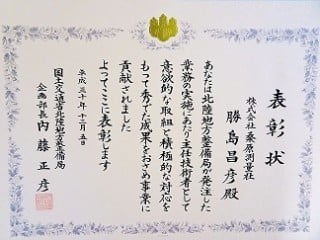 表彰状
株式会社桑原測量社
勝島昌彦殿
あなたは北陸地方整備局が発注した
業務の実施にあたり主任技術者として
意欲的な取組と積極的な対応を
もって秀でた成果をおさめ事業に
貢献されました
よってここに表彰します
平成三十年十二月五日
国土交通省北陸地方整備局
企画部長内藤正彦